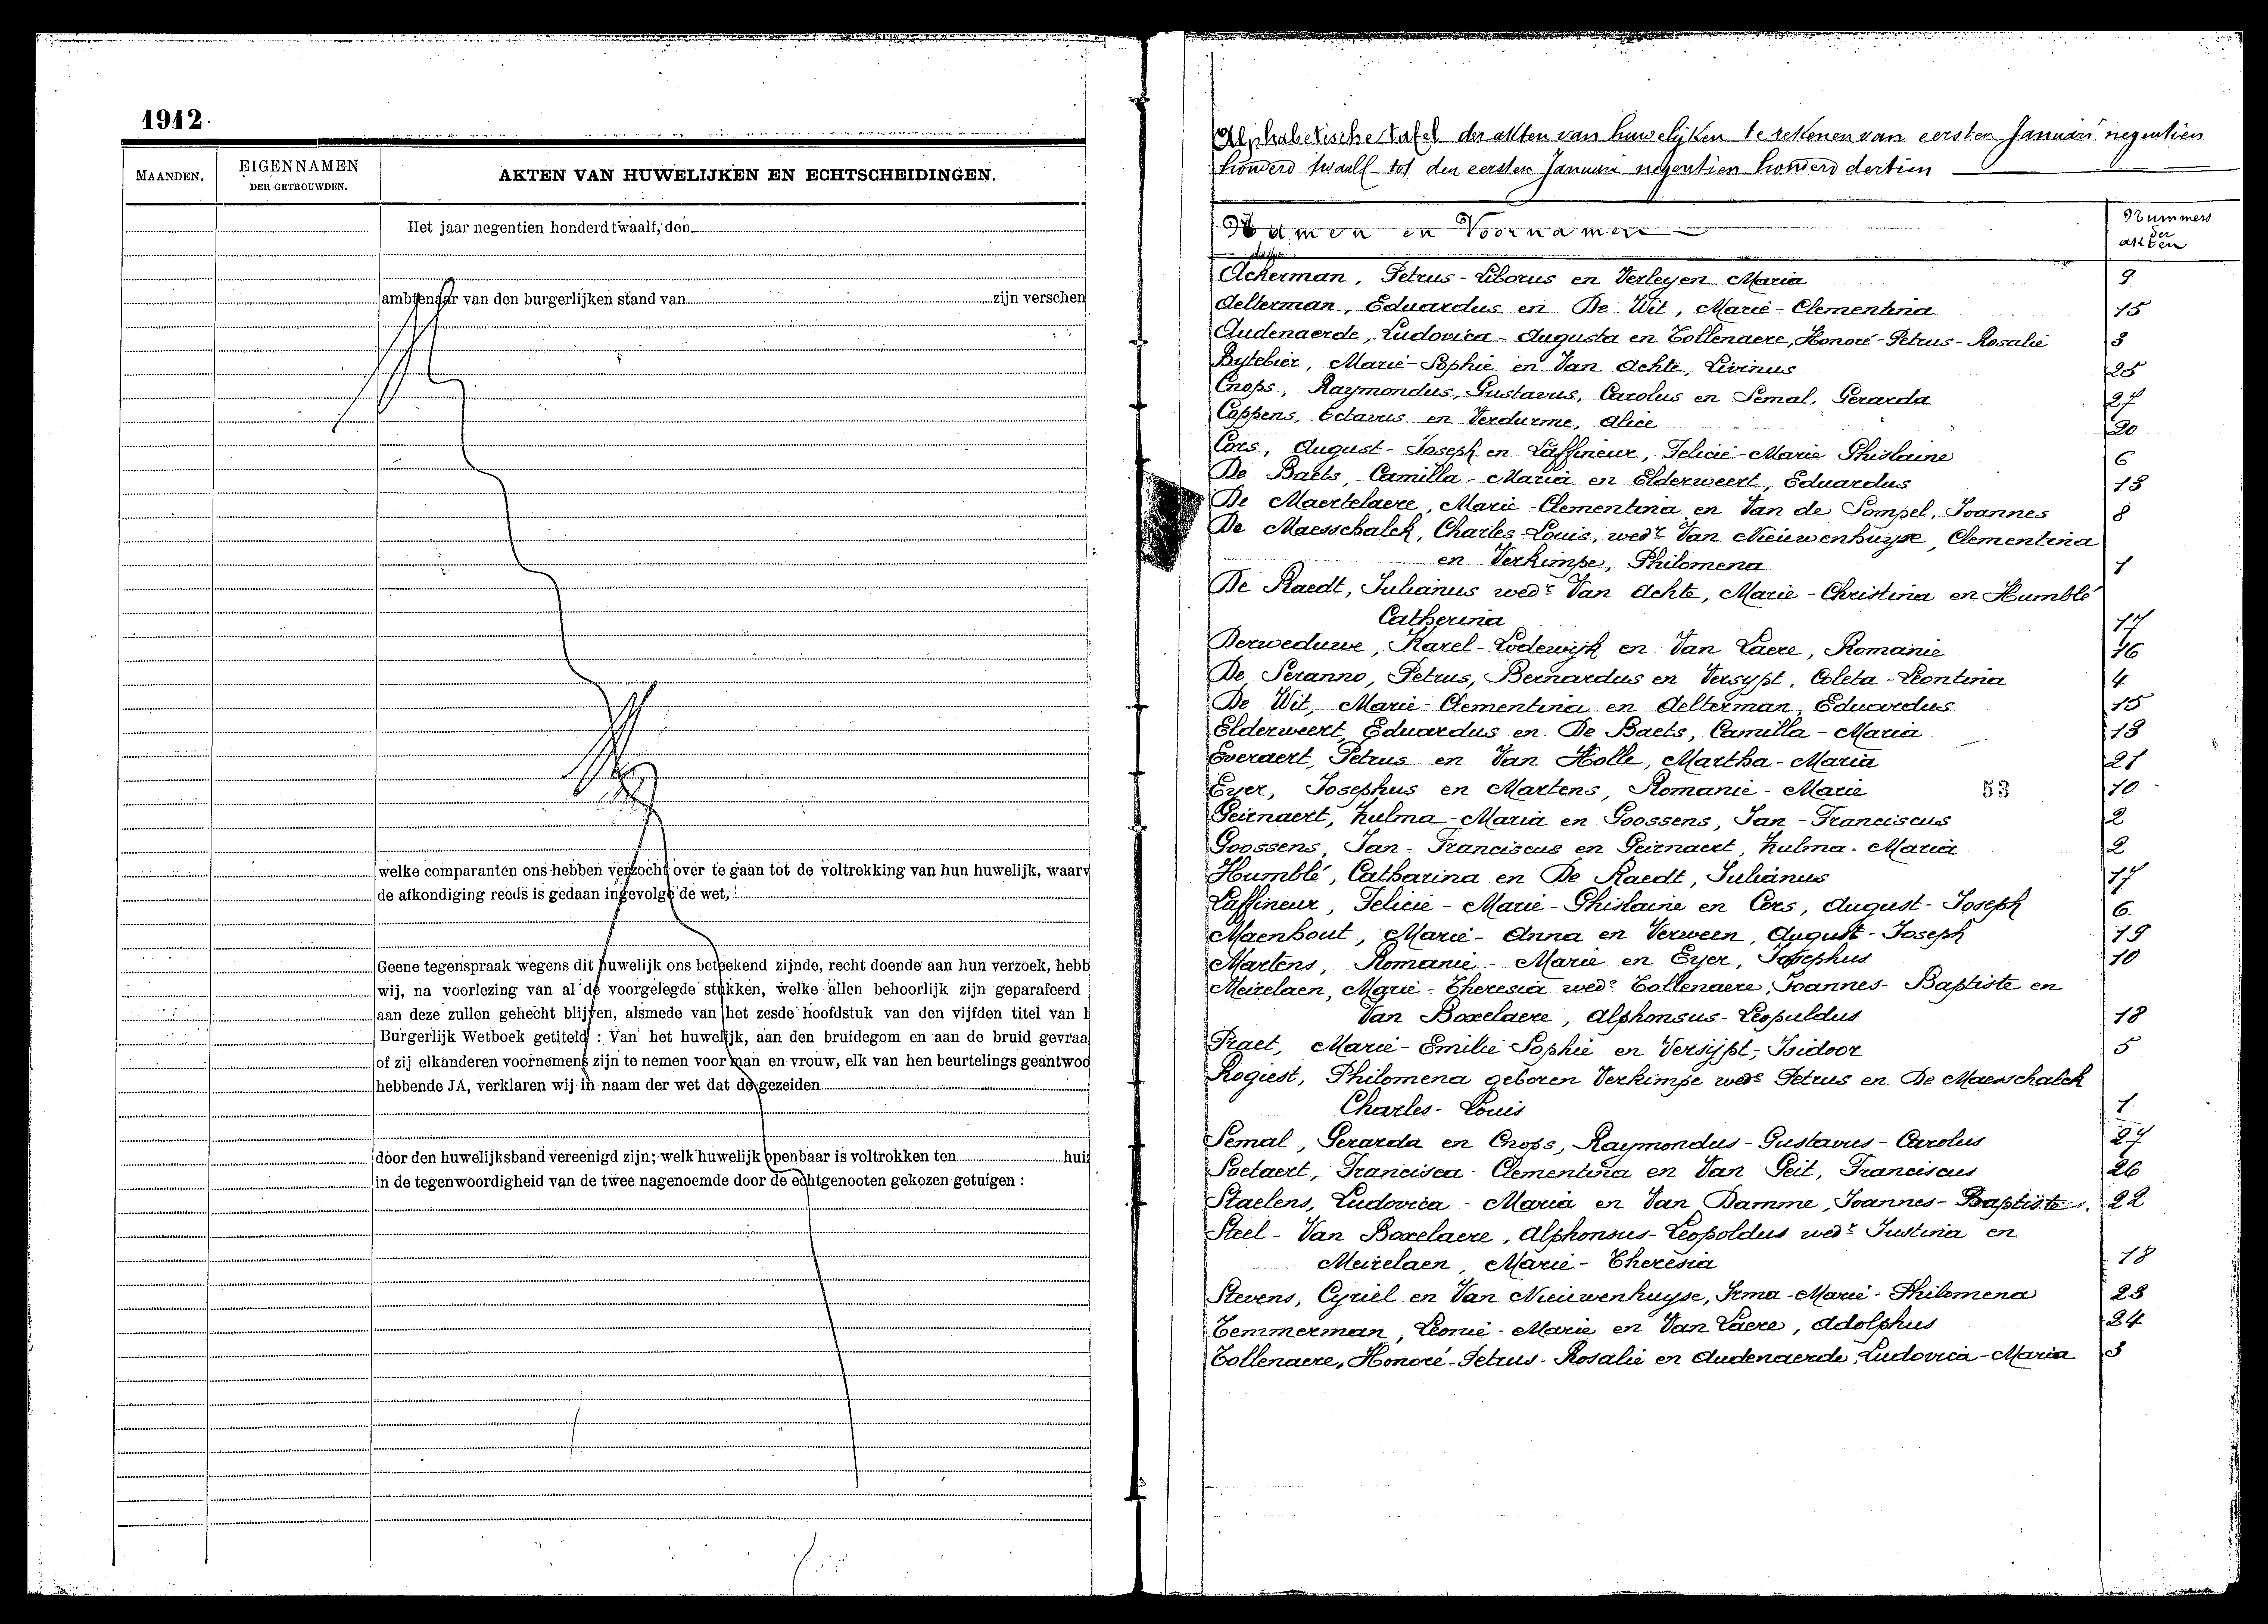 1912.
MAANDEN.
EIGENNAMEN
DER GETROUWDEN.
AKTEN VAN HUWELIJKEN EN ECHTSCHEIDINGEN.
Het jaar negentien honderd twaalf, den
ambtenaar van den burgerlijken stand van zijn verschen
welke comparanten ons hebben verzocht over te gaan tot de voltrekking van hun huwelijk, waarv
de afkondiging reeds is gedaan ingevolge de wet,
Geene tegenspraak wegens dit huwelijk ons beteekend zijnde, recht doende aan hun verzoek, hebb
wij, na voorlezing van al de voorgelegde stukken, welke allen behoorlijk zijn geparafeerd
aan deze zullen gehecht blijven, alsmede van het zesde hoofdstuk van den vijfden titel van h
Burgerlijk Wetboek getiteld : Van het huwelijk, aan den bruidegom en aan de bruid gevraa
of zij elkanderen voornemens zijn te nemen voor man en vrouw, elk van hen beurtelings geantwoo
hebbende JA, verklaren wij in naam der wet dat de gezeiden
door den huwelijksband vereenigd zijn; welk huwelijk openbaar is voltrokken ten hui
in de tegenwoordigheid van de twee nagenoemde door de echtgenooten gekozen getuigen :
Alphabetische tafel der akten van huwelijken te rekenen van eersten Januari negentien
honderd twaalf tot den eersten Januari negentien honderd dertien
Namen en Voornamen
Nummers
der
akten
Ackerman, Petrus-Liborus en Verleyen Maria 9
Aelterman, Eduardus en De Wit, Marie-Clementina 15
Audenaerde, Ludovica-Augusta en Tollenaere, Honoré-Petrus-Rosalie 3
Bytebier, Marie-Sophie en Van Achte, Livinus 25
Cnops, Raymondus, Gustavus, Carolus en Semal, Gerarda 27
Coppens, Octavus en Verdurme, Alice 20
Cors, August-Joseph en Laffineur, Felicie-Marie Ghislaine 6
De Baets, Camilla-Maria en Elderweert, Eduardus 13
De Maertelaere, Marie-Clementina en Van de Sompel, Joannes 8
De Maesschalck, Charles-Louis, wedr Van Nieuwenhuyse, Clementina
en Verkimpe, Philomena 1
De Raedt, Julianus wedr Van Achte, Marie-Christina en Humblé
Catherina 17
Derweduwe, Karel-Lodewijk en Van Laere, Romanie 16
De Seranno, Petrus, Bernardus en Versypt, Coleta-Leontina 4
De Wit, Marie-Clementina en Aelterman, Eduardus 15
Elderweert, Eduardus en De Baets, Camilla-Maria 13
Everaert, Petrus en Van Holle, Martha-Maria 21
Eyer, Josephus en Martens, Romanie-Marie 53 10
Geirnaert, Zulma-Maria en Goossens, Jan-Franciscus 2
Goossens, Jan-Franciscus en Geirnaert, Zulma-Maria 2
Humblé, Catharina en De Raedt, Julianus 17
Laffineur, Felicie-Marie-Ghislaine en Cors, August-Joseph 6
Maenhout, Marie-Anna en Verween, August-Joseph 19
Martens, Romanie-Marie en Eyer, Josephus 10
Meirelaen, Marie-Theresia wede Tollenaere, Joannes-Baptiste en
Van Boxelaere, Alphonsus-Leopuldus 18
Praet, Marie-Emilie Sophie en Versijpt, Isidoor 5
Rogiest, Philomena geboren Verkimpe wede Petrus en De Maesschalck
Charles-Louis 1
Semal, Gerarda en Cnops, Raymondus-Gustavus-Carolus 27
Soetaert, Francisca-Clementina en Van Geit, Franciscus 26
Staelens, Ludovica-Maria en Van Damme, Joannes-Baptiste. 22
Steel-Van Boxelaere, Alphonsus-Leopoldus wedr Justina en
Meirelaen, Marie-Theresia 18
Stevens, Cyriel en Van Nieuwenhuyse, Irma-Marie-Philomena 23
Temmerman, Leonie-Marie en Van Laere, Adolphus 24
Tollenaere, Honoré-Petrus-Rosalie en Audenaerde, Ludovica-Maria 3